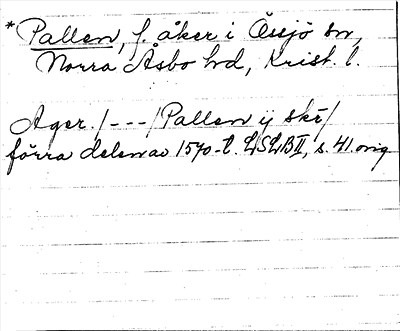 * Pallen, f. åker i Össjö sn,
Norra Åsbo hd, Krist. l.
Ager. /---/ Pallen ij skē /
förra delen av 1570-t. LSLB II, s. 41. orig